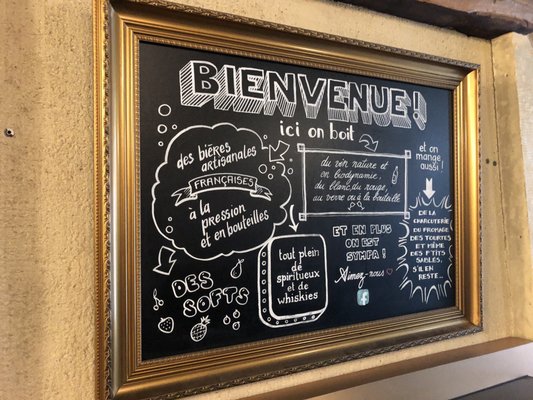 BIENVENUE!
ici on boit
des bières
artisanales
FRANÇAISES
à la
pression
et en bouteilles
du vin nature et
en biodynamie,
du blanc, du rouge,
au verre ou à la bouteille
et on
mange
aussi!
DE LA
CHARCUTERIE
DU FROMAGE
DES TOURTES
ET MÊME
DES P'TITS
SABLÉS,
S'IL EN
RESTE...
tout plein
de
spiritueux
et de
whiskies
ET EN PLUS
ON EST
SYMPA!
Aimez-nous
f
DES
SOFTS